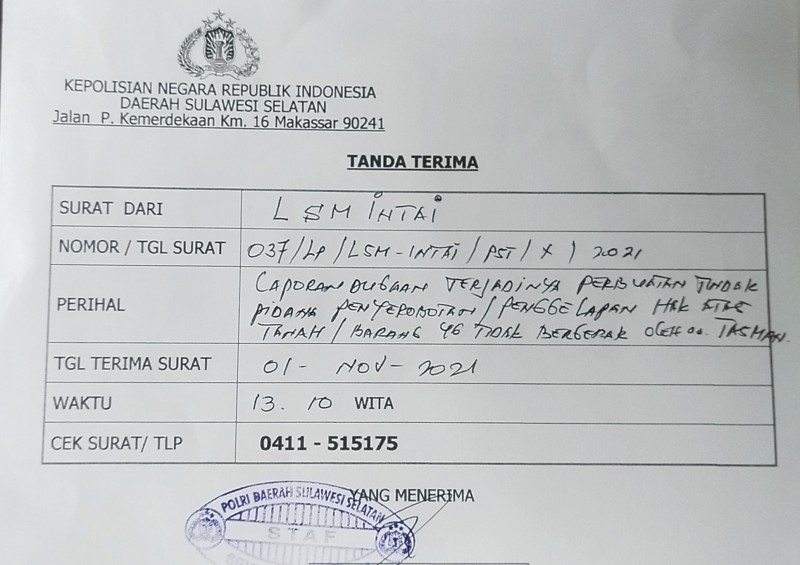 KEPOLISIAN NEGARA REPUBLIK INDONESIA
DAERAH SULAWESI SELATAN
Jalan P. Kemerdekaan Km. 16 Makassar 90241
TANDA TERIMA
SURAT DARI LSM INTAI
NOMOR / TGL SURAT 037/LP/LSM-INTAI/PST/X/2021
PERIHAL LAPORAN DUGAAN TERJADINYA PERBUATAN TINDAK
PIDANA PENYEROBOTAN/PENGGELAPAN HAK ATAS
TANAH/BARANG YG TIDAK BERGERAK OLEH TASMAN.
TGL TERIMA SURAT 01 - NOV - 2021
WAKTU 13.10 WITA
CEK SURAT/ TLP 0411 - 515175
YANG MENERIMA
POLRI DAERAH SULAWESI SELATAN
STAF